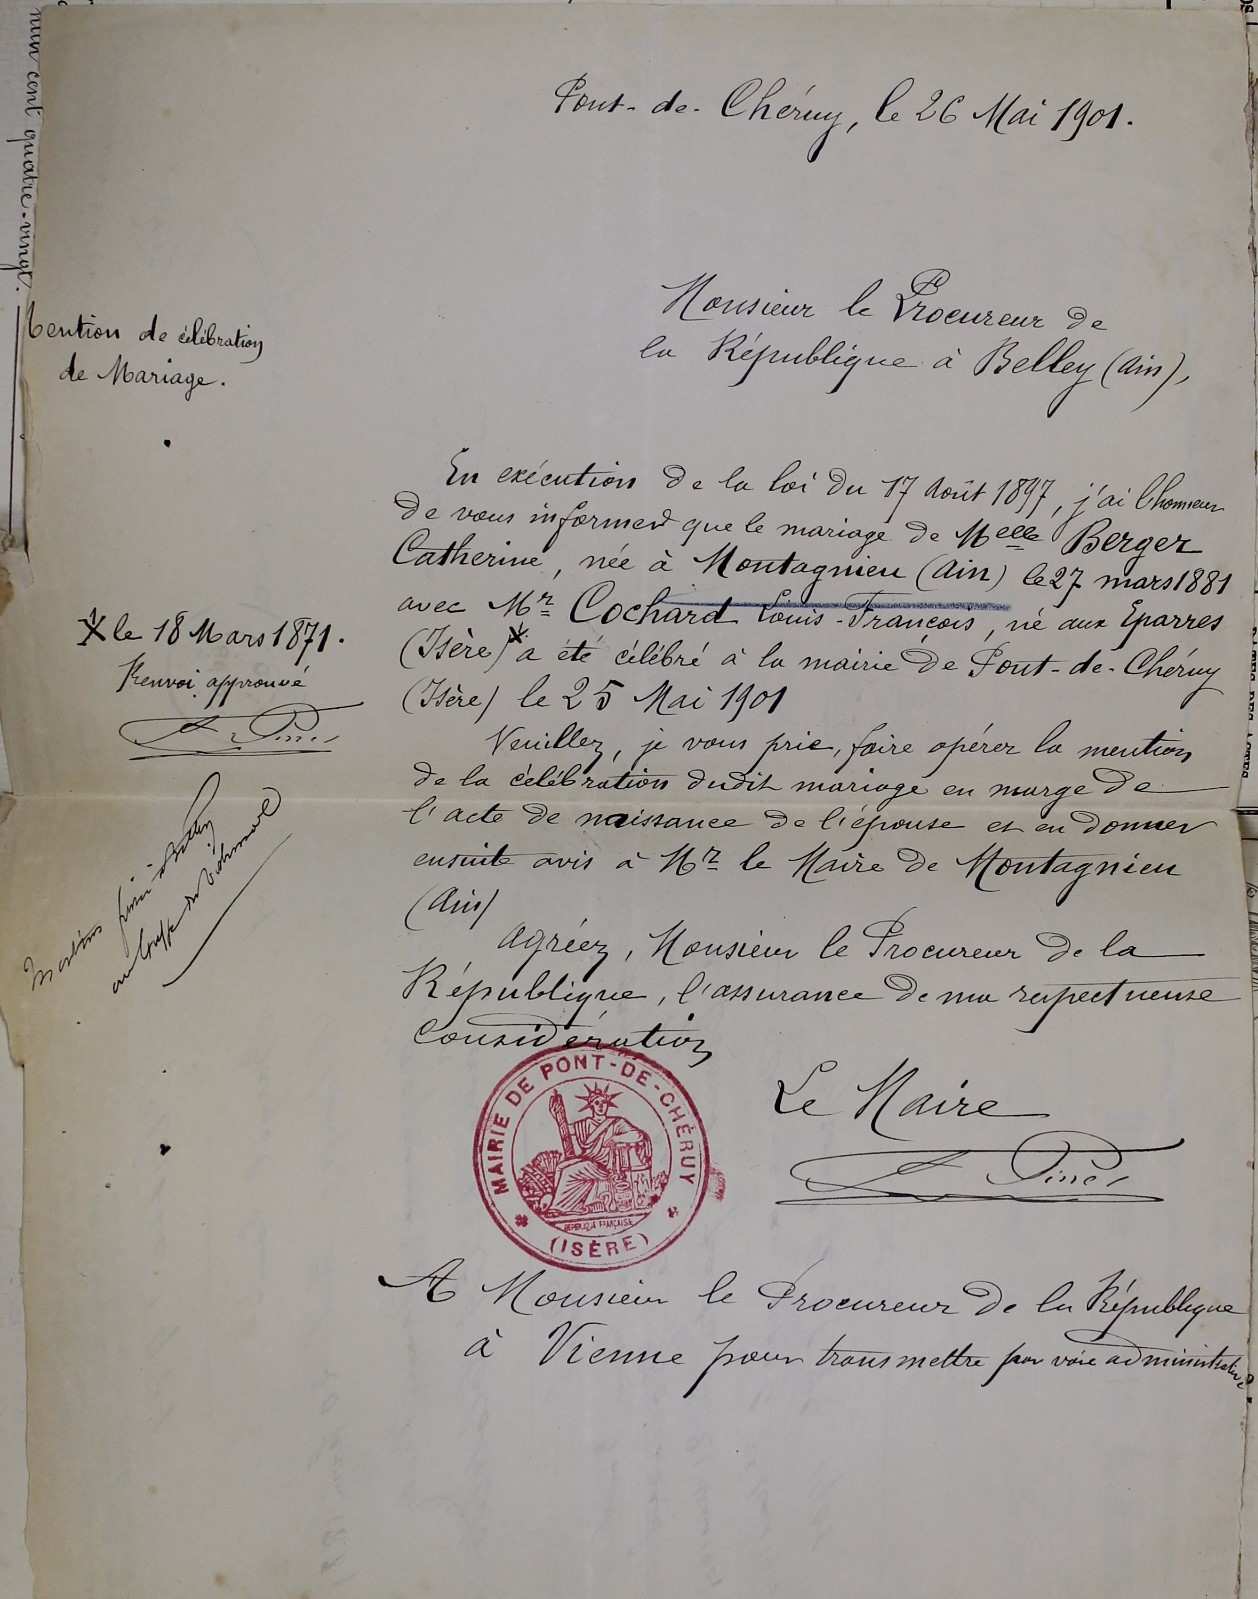 nun cent quatre-vingt
Pont-de-Chéruy, le 26 Mai 1901.
Monsieur le Procureur de
la République à Belley (Ain),
Mention de célébration
de Mariage.
En exécution de la loi du 17 Août 1897, j'ai l'honneur
de vous informer que le mariage de Melle Berger
Catherine, née à Montagnieu (Ain) le 27 mars 1881
avec Mr Cochard Louis-François, né aux Eparres
(Isère) * a été célébré à la mairie de Pont-de-Chéruy
(Isère) le 25 Mai 1901
* le 18 Mars 1871.
Renvoi approuvé
Veuillez, je vous prie, faire opérer la mention
de la célébration dudit mariage en marge de
l'acte de naissance de l'épouse et en donner
ensuite avis à Mr le Maire de Montagnieu
(Ain)
Agréez, Monsieur le Procureur de la
République, l'assurance de ma respectueuse
considération
Mention
au Greffe du Tribunal
MAIRIE DE PONT-DE-CHÉRUY
RÉPUBLIQUE FRANÇAISE
(ISÈRE)
Le Maire
A Monsieur le Procureur de la République
à Vienne pour transmettre par voie administrative.